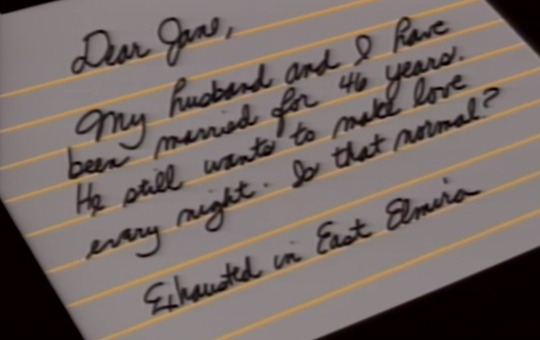 Dear Jane,
My husband and I have
been married for 46 years.
He still wants to make love
every night. Is that normal?
Exhausted in East Elmira